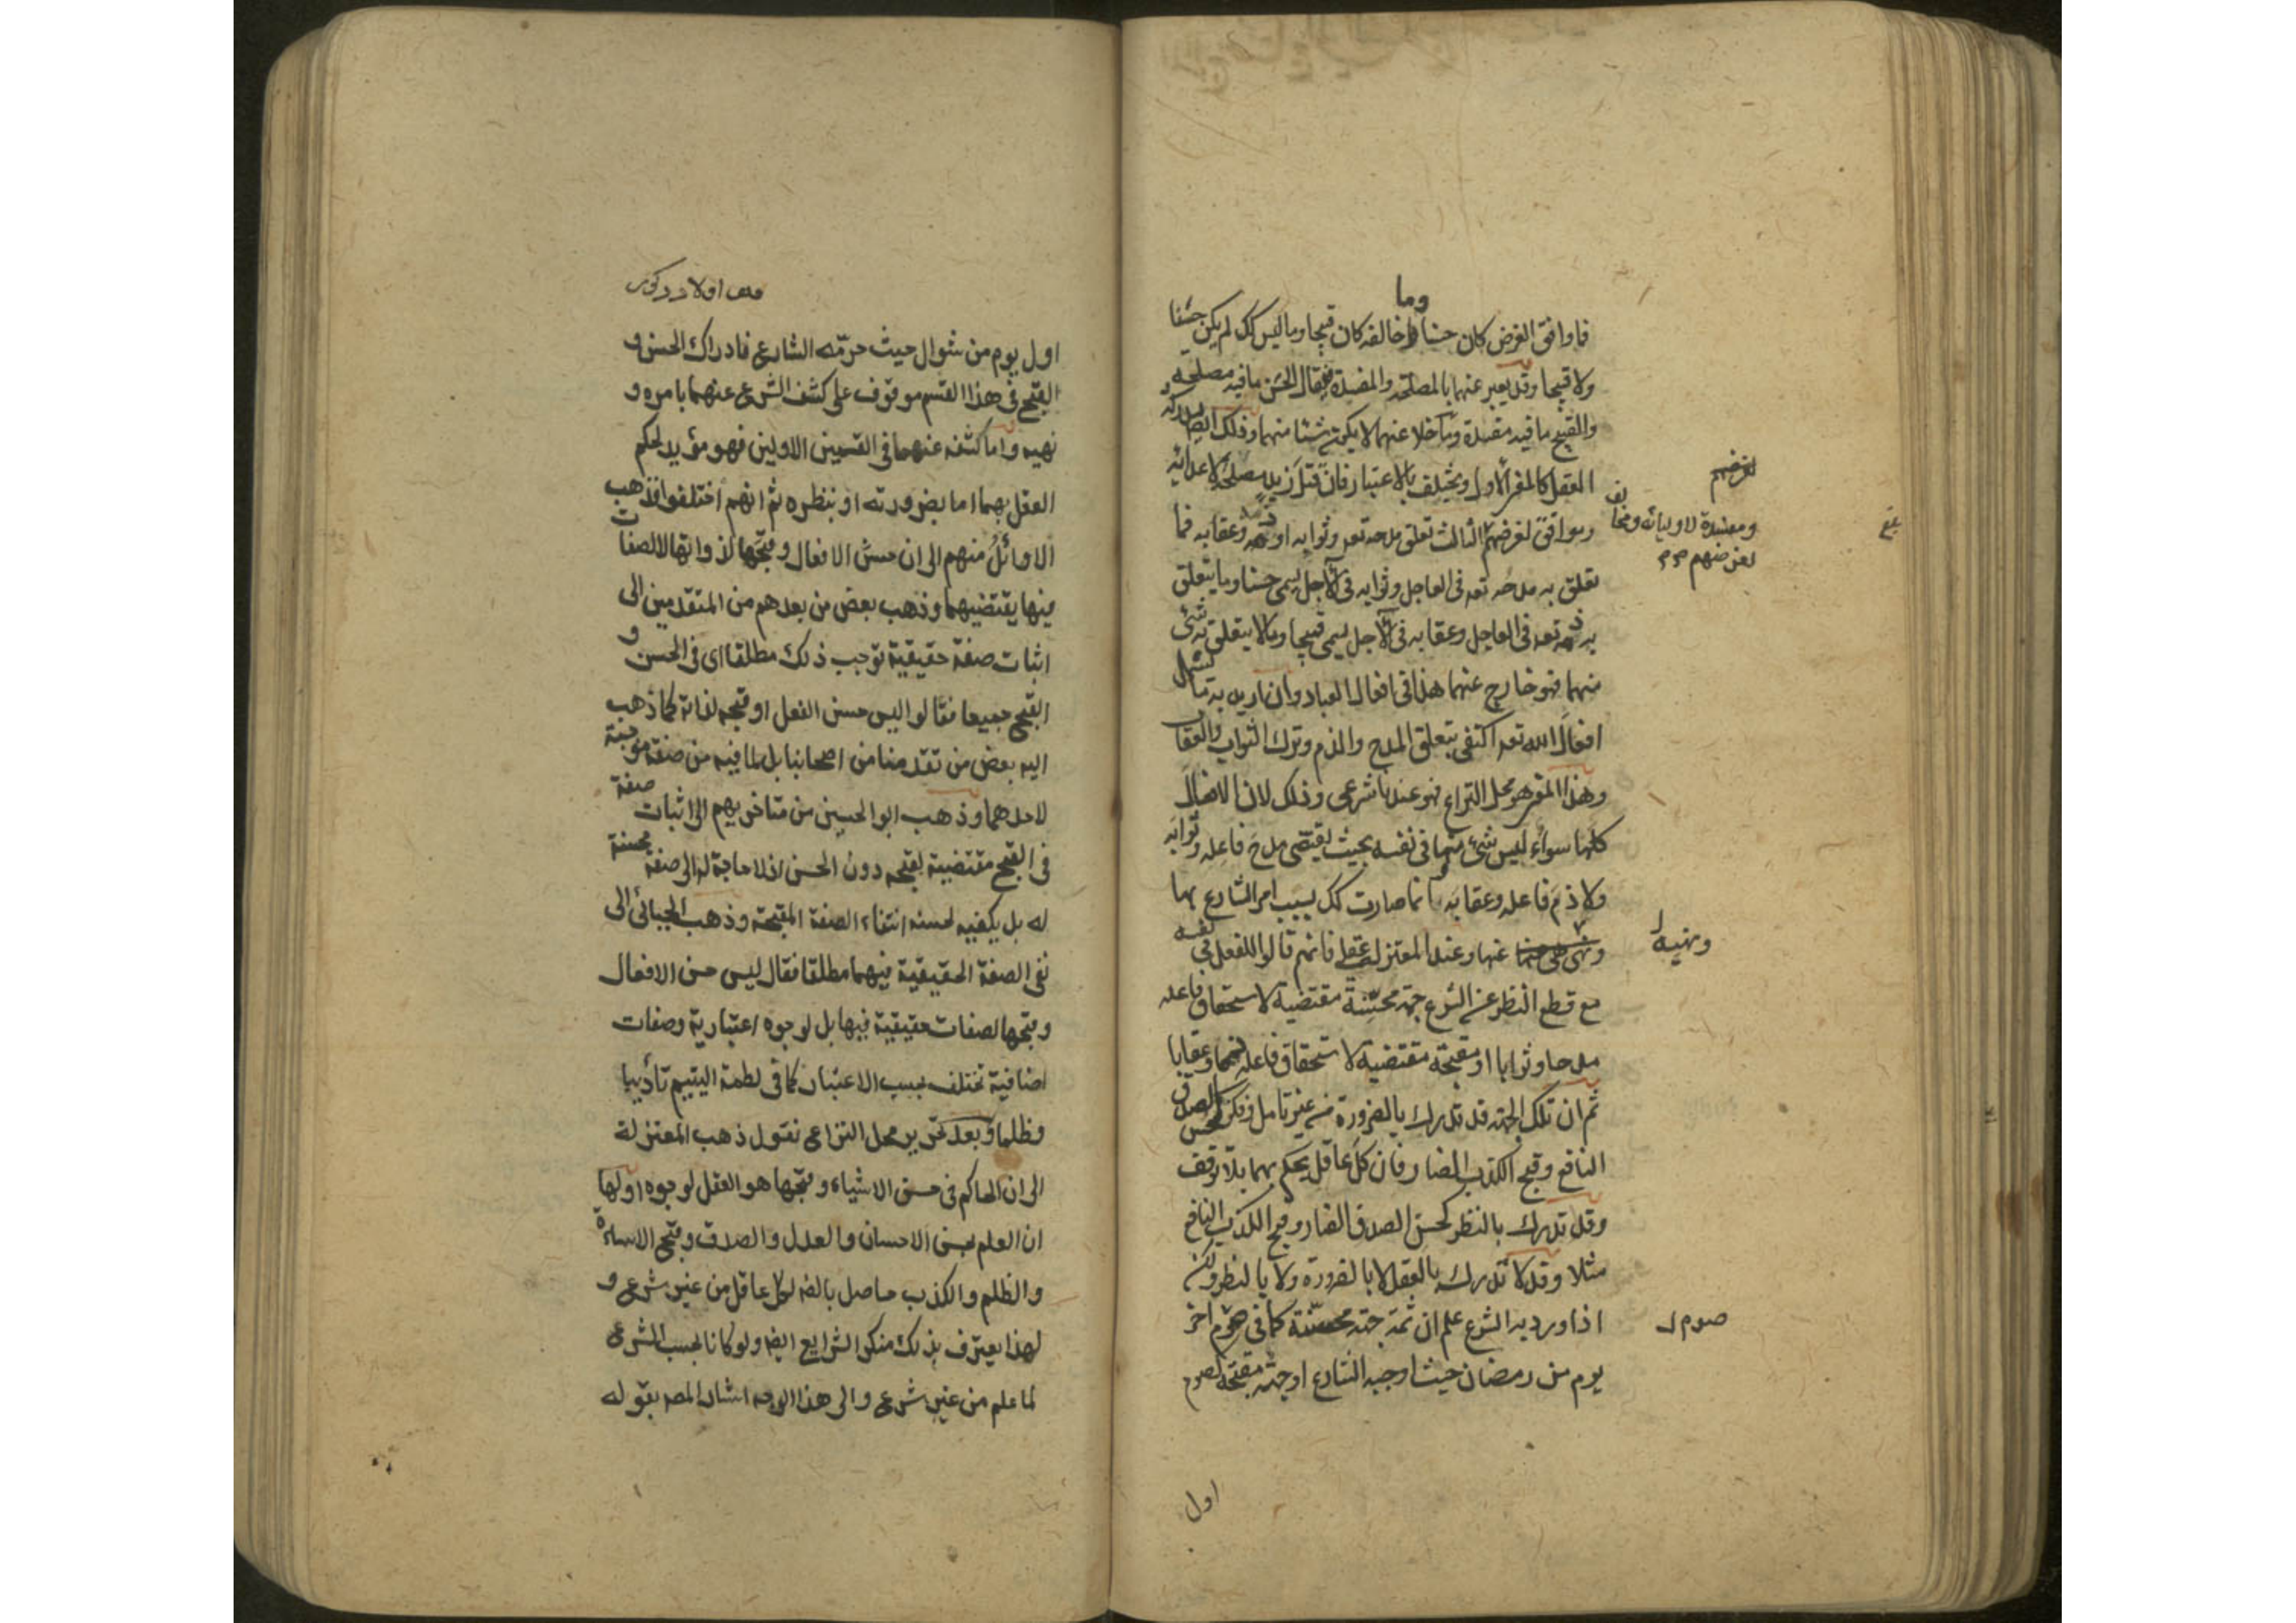 وما
فما وافق الغرض كان حسنا وما خالفه كان قبيحا وما ليس كك لم يكن حسنا
ولا قبيحا وقد يعبر عنهما بالمصلحة والمفسدة فيقال الحسن ما فيه مصلحة
والقبيح ما فيه مفسدة وما خلا عنهما لا يكون شيئا منهما وذلك ايض يدركه
العقل كالمعنى الاول ويختلف بالاعتبار فان قتل زيد مصلحة لاعدائه
وموافق لغرضهم الثالث تعلق مدحه تعه وثوابه او ذمه وعقابه فما
لغرضهم
ومفسدة لاوليائه ومخالف
لغرضهم
بلغ
تعلق به مدحه تعه فى العاجل وثوابه فى الآجل يسمى حسنا وما يتعلق
به ذمه تعه فى العاجل وعقابه فى الآجل يسمى قبيحا وما لا يتعلق به شئ
منهما فهو خارج عنهما هذا فى افعال العباد وان اريد به ما يشمل
افعال الله تعه اكتفى بتعلق المدح والذم وترك الثواب والعقاب
وهذا المعنى هو محل النزاع فهو عندنا شرعى وذلك لان الافعال
كلها سواء ليس شئ منها فى نفسه بحيث يقتضى مدح فاعله وثوابه
ولا ذم فاعله وعقابه وانما صارت كك بسبب امر الشارع بها
ونهيه عنها وعند المعتزلة عقلى فانهم قالوا للفعل فى نفسه
ونهيه
مع قطع النظر عن الشرع جهة محسنة مقتضية لاستحقاق فاعله
مدحا وثوابا او مقبحة مقتضية لاستحقاق فاعله ذما وعقابا
ثم ان تلك الجهة قد تدرك بالضرورة من غير تامل وفكر كحسن الصدق
النافع وقبح الكذب الضار فان كل عاقل يحكم بهما بلا توقف
وقد تدرك بالنظر كحسن الصدق الضار وقبح الكذب النافع
مثلا وقد لا تدرك بالعقل لا بالضرورة ولا بالنظر ولكن
اذا ورد به الشرع علم ان ثمة جهة محسنة كما فى صوم اخر
صوم
يوم من رمضان حيث اوجبه الشارع او جهة مقبحة كصوم
اول
اول يوم من شوال حيث حرمه الشارع فادراك الحسن و
القبح فى هذا القسم موقوف على كشف الشرع عنهما بامره و
نهيه واما كشفه عنهما فى القسمين الاولين فهو مؤيد لحكم
العقل بهما اما بضرورته او بنظره ثم انهم اختلفوا فذهب
الاوائل منهم الى ان حسن الافعال وقبحها لذواتها لا لصفات
فيها يقتضيهما وذهب بعض من بعدهم من المتقدمين الى
اثبات صفة حقيقية توجب ذلك مطلقا اى فى الحسن و
القبح جميعا فقالوا ليس حسن الفعل او قبحه لذاته كما ذهب
اليه بعض من تقدمنا من اصحابنا بل لما فيه من صفة موجبة
لاحدهما وذهب ابو الحسين من متاخريهم الى اثبات صفة
فى القبح مقتضية لقبحه دون الحسن اذ لا حاجة له الى صفة محسنة
له بل يكفيه لحسنه انتفاء الصفة المقبحة وذهب الجبائى الى
نفى الصفة الحقيقية فيهما مطلقا فقال ليس حسن الافعال
وقبحها لصفات حقيقية فيها بل لوجوه اعتبارية وصفات
اضافية تختلف بحسب الاعتبار كما فى لطمة اليتيم تأديبا
وظلما وبعد تحرير محل النزاع نقول ذهب المعتزلة
الى ان الحاكم فى حسن الاشياء وقبحها هو العقل لوجوه اولها
ان العلم بحسن الاحسان والعدل والصدق وقبح الاساءة
والظلم والكذب حاصل بالضه لكل عاقل من غير شرع و
لهذا يعترف بذلك منكر الشرايع ايضه ولو كانا بحسب الشرع
لما علم من غير شرع والى هذا الوجه اشار المصه بقوله